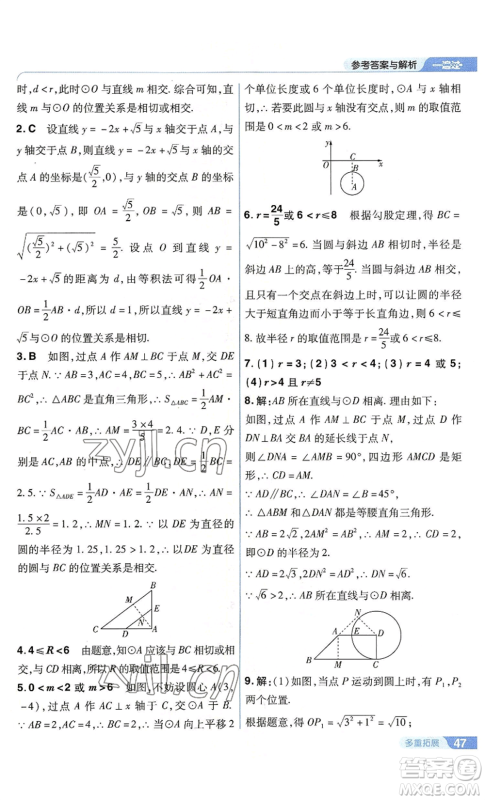 参考答案与解析 一遍过
时,d<r,此时⊙O与直线m相交.综合可知,直
线m与⊙O的位置关系是相切或相交.
2.C 设直线y=-2x+√5与x轴交于点A,
与y轴交于点B,则直线y=-2x+√5与x轴的
交点A的坐标是(√5/2,0),与y轴的交点B的坐标
是(0,√5),即OA=√5/2,OB=√5,∴AB=
√((√5/2)²+(√5)²)=5/2.设点O到直线y=
-2x+√5的距离为d,由等积法可得1/2OA·
OB=1/2AB·d,解得d=1,∴直线y=-2x+
√5与⊙O的位置关系是相切.
3.B 如图,过点A作AM⊥BC于M,交DE
于点N.∵AB=3,AC=4,BC=5,∴AB²+AC²=
BC²,∴△ABC是直角三角形.∵S△ABC=1/2AM·
BC=1/2AB·AC,∴AM=(3×4)/5=2.4.∵D,E分
别是AC,AB的中点,∴DE∥BC,DE=1/2BC=
2.5.∵S△ADE=1/2AD·AE=1/2DE·AN,∴AN=
(1.5×2)/2.5=1.2,∴MN=1.2.∵以DE为直径的
圆的半径为1.25,1.25>1.2,∴以DE为直径的
圆与BC的位置关系是相交.
B M E C D A
4.4≤R<6 由题意,知⊙A应该与BC相切或
相交,与DE相离,∴半径R的取值范围是4≤R<6.
5.0<m<2或m>6 如图,不妨设圆心A(3,
-4),过点A作AB⊥x轴于点B,交⊙A于点C,
∴AB=4,AC=2,∴BC=2,∴当⊙A向上平移2
个单位长度或6个单位长度时,⊙A与x轴相
切,∴若⊙A与x轴无公共点,则m的取值范
围是0<m<2或m>6.
y O B x C A
6.r=24/5或6<r≤8 根据勾股定理,得BC=
√(10²-8²)=6.当圆和斜边相切时,半径是
斜边上的高,等于24/5.当圆和斜边相交,且只
有一个交点在斜边上时,可以让圆的半径
大于短直角边而小于等于长直角边,∴6<r≤
8.故半径r的取值范围是r=24/5或6<r≤8.
7.(1)r=3;(2)3<r<4;(3)r=4或5;
(4)r>4且r≠5
8.解:AB所在直线与⊙D相切.理由如下:
如图,过点A作AM⊥BC于点M,过点D作
DN⊥BA交BA的延长线于点N,
则∠DNA=∠AMB=90°,四边形AMCD是
矩形.
∵AD∥BC,∴∠DAN=∠B=45°,
∴△AMB,△AND都是等腰直角三角形.
∵AB=2√2,∴AM=2,∴CD=AM=2,即⊙D
的半径为2.
∵AD=2√3,∴DN=√6.
∵√6>2,∴AB所在的直线与⊙D相离.
N A D B M C
9.解:(1)如图,当点P运动到圆上时,有P₁,P₂
两个位置.
根据题意,得OP₁=√(3²+1²)=√10;
多重拓展 47
zyjl.cn
zyjl.cn
答案圈